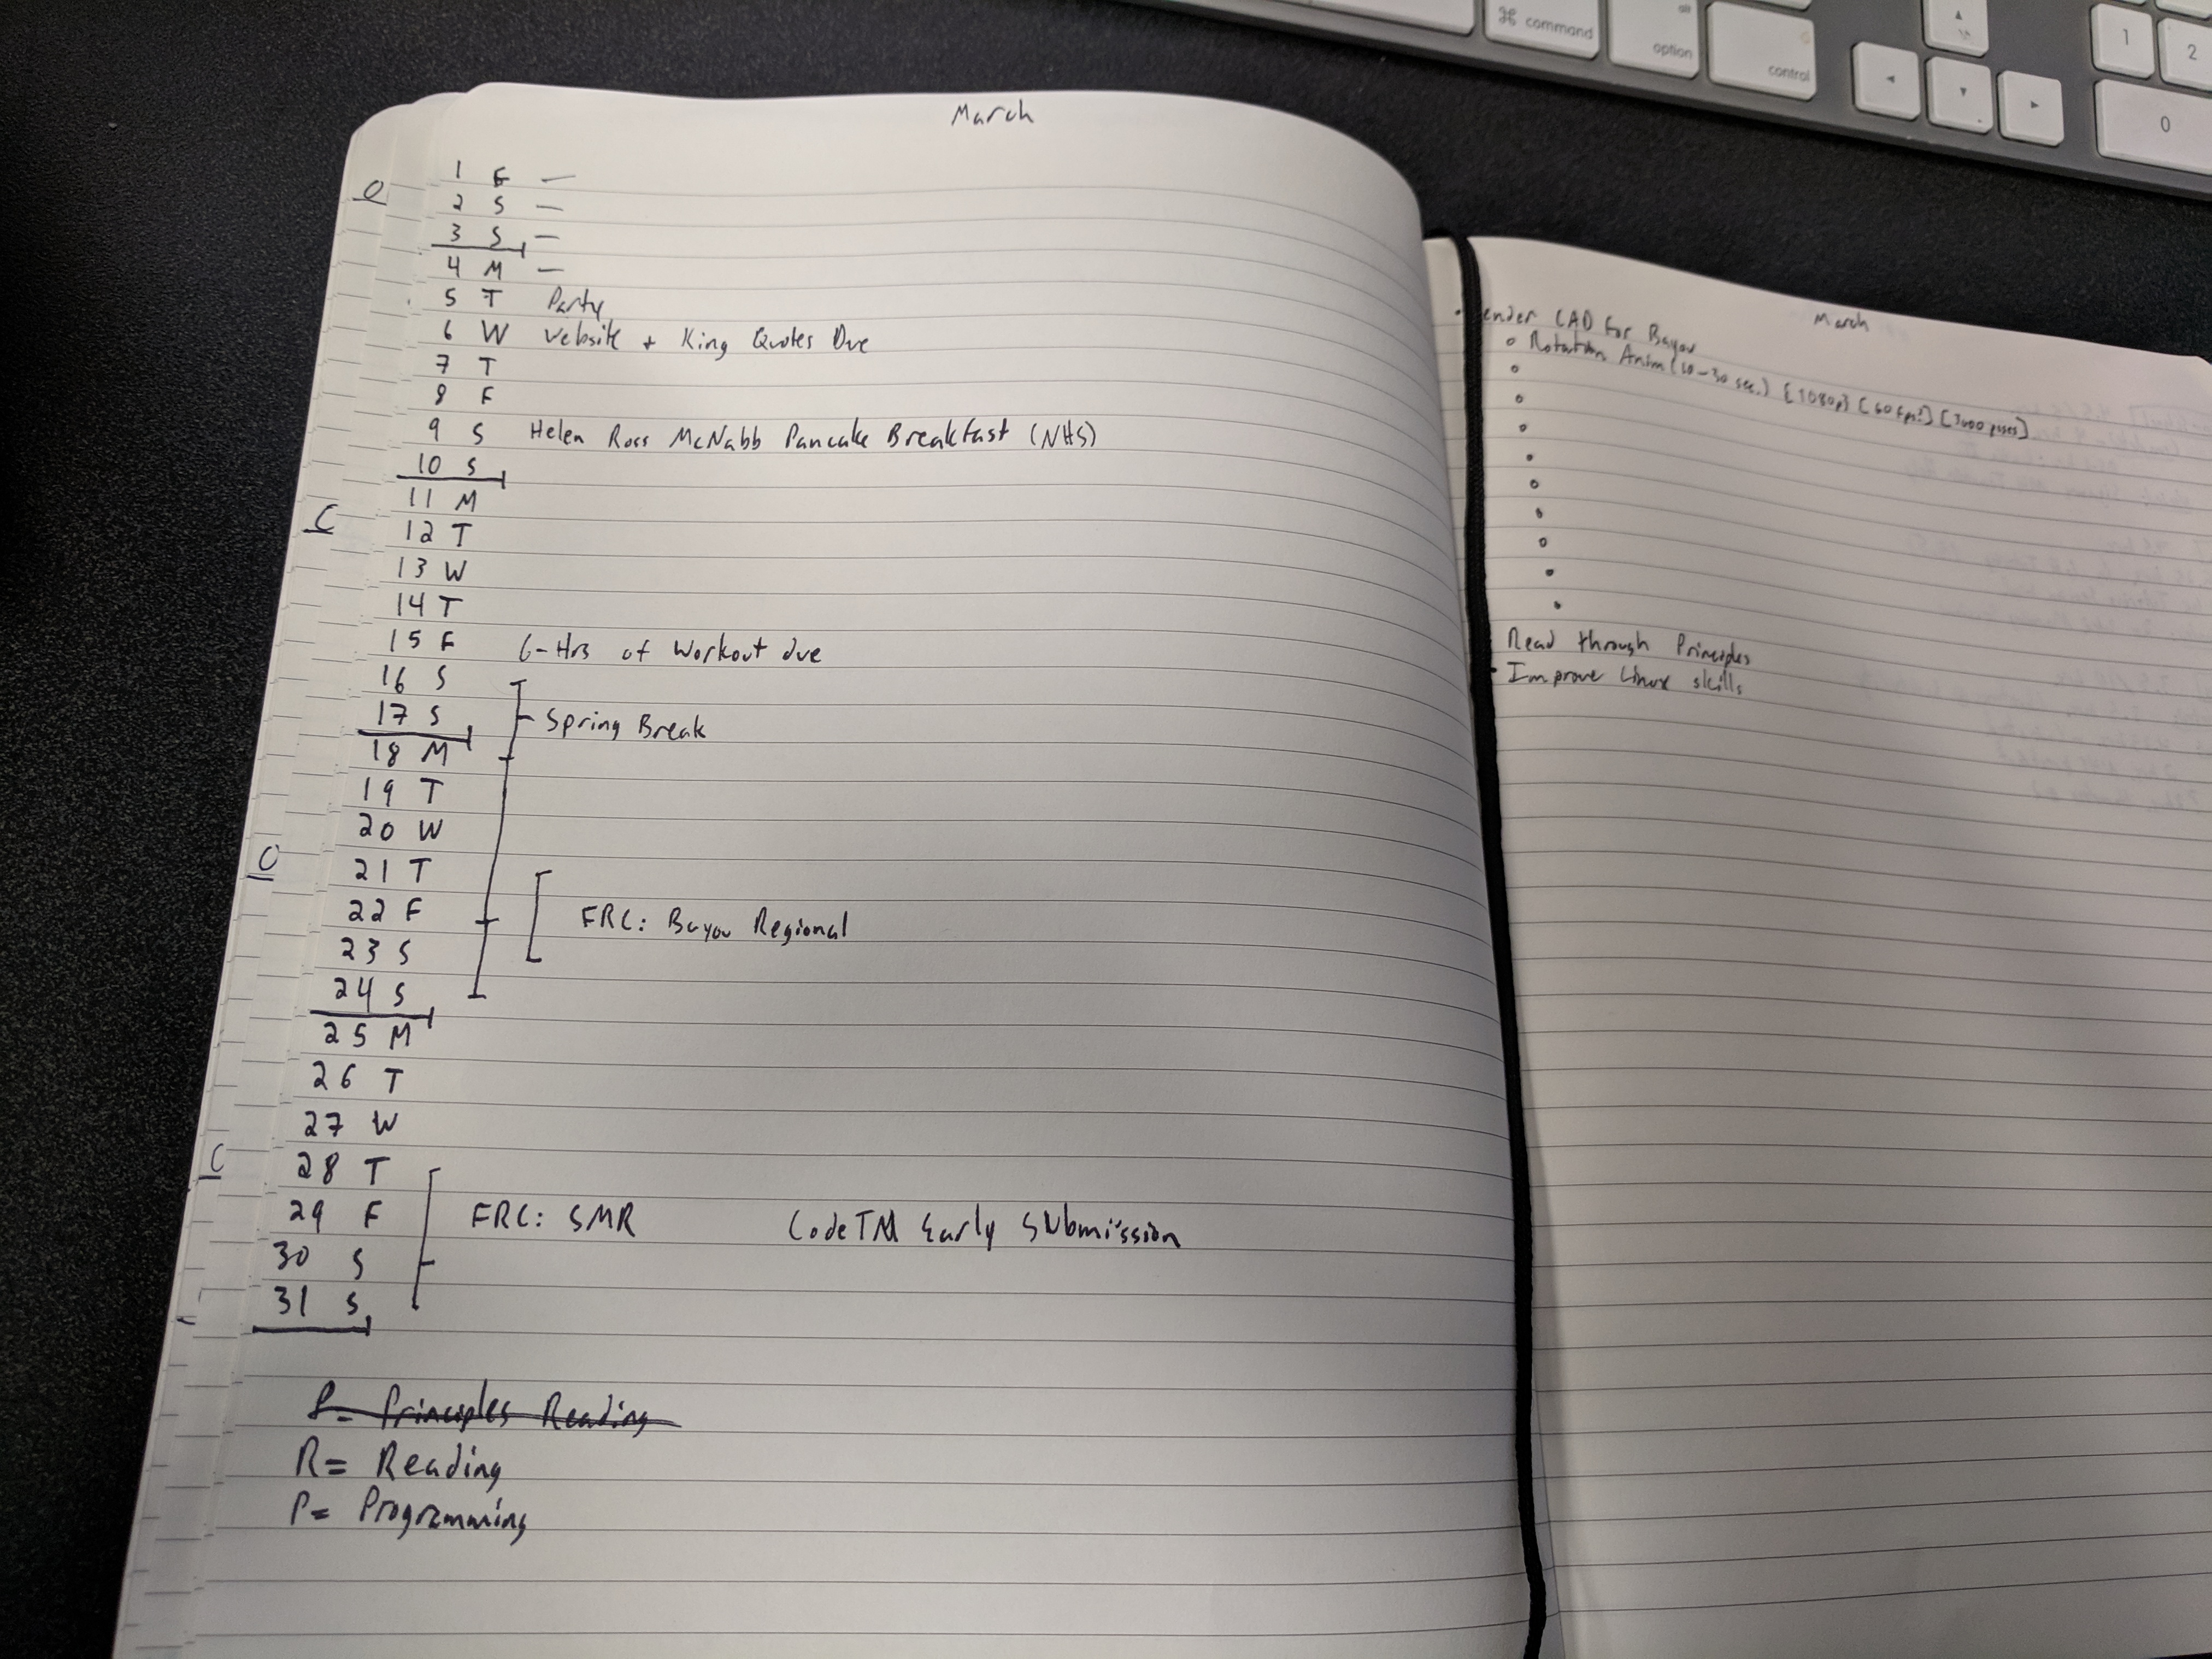 ⌘ command
alt
option
control
1
2
0
March
1 F —
2 S —
3 S —
4 M —
5 T Party
6 W Website + King Quotes Due
7 T
8 F
9 S Helen Ross McNabb Pancake Breakfast (NHS)
10 S
11 M
12 T
13 W
14 T
15 F 6-Hrs of Workout due
16 S
17 S Spring Break
18 M
19 T
20 W
21 T
22 F FRC: Bayou Regional
23 S
24 S
25 M
26 T
27 W
28 T
29 F FRC: SMR CodeTM Early Submission
30 S
31 S
P= Principles Reading
R= Reading
P= Programming
O
C
O
C
March
ender CAD for Bayou
Rotation Anim (10-30 sec.) [1080p] [60fps!] [3600
Read through Principles
Improve Linux skills